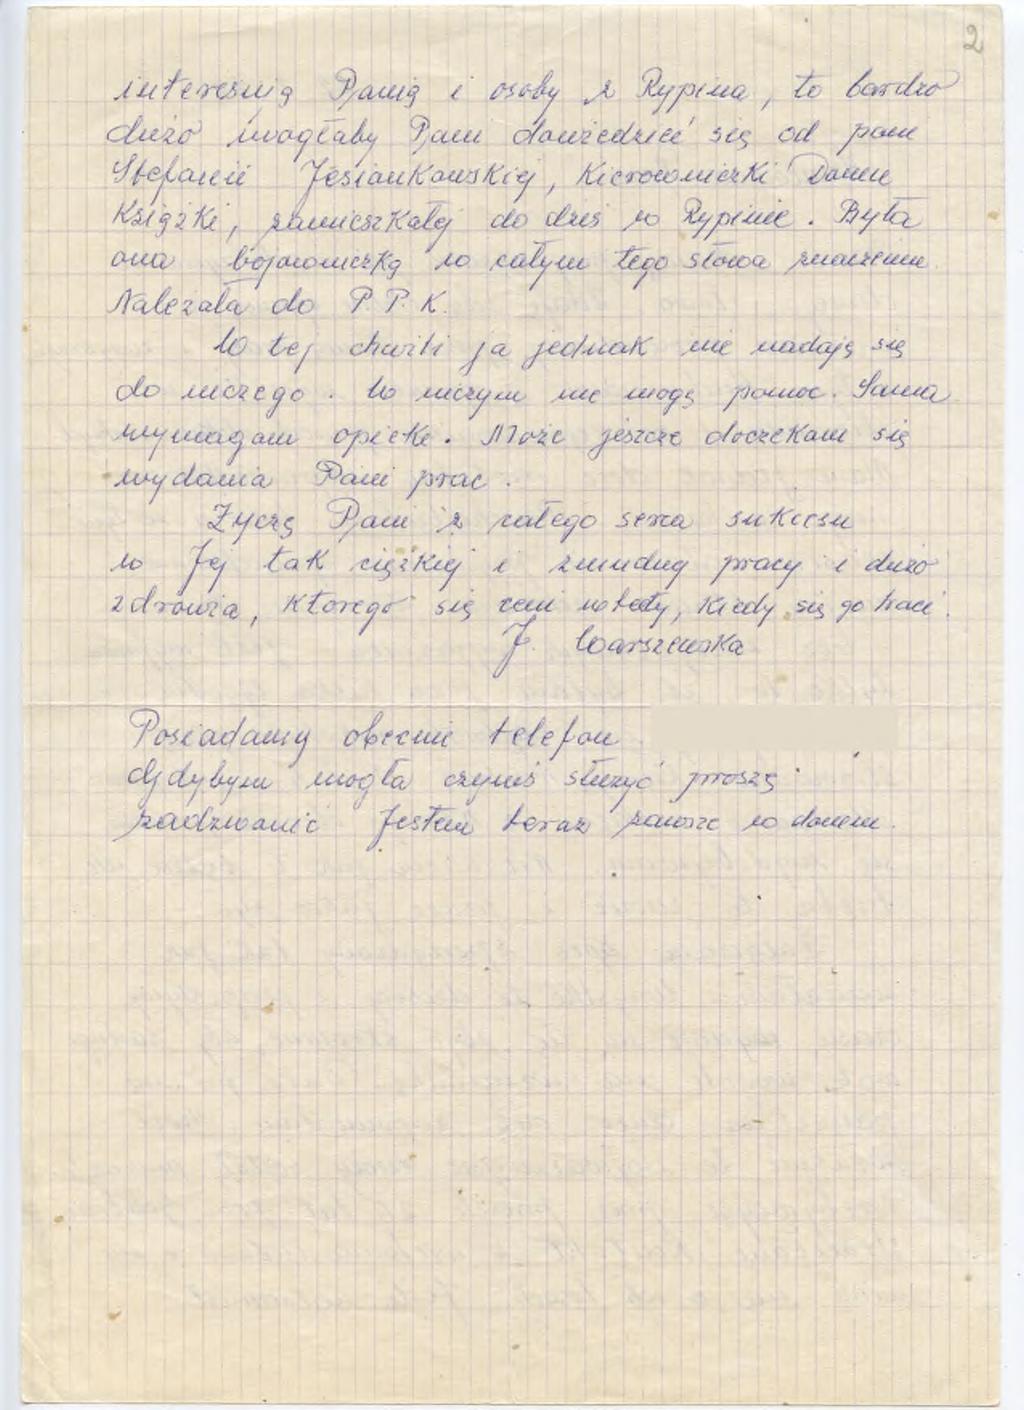 2
interesują Panią i osoby z Rypina, to bardzo
dużo mogłaby Pani dowiedzieć się od pani
Stefanii Jesiankowskiej, Kierowniczki Domu
Książki, zamieszkałej do dziś w Rypinie. Była
ona bojowniczką w całym tego słowa znaczeniu.
Należała do P.P.K.
W tej chwili ja jednak nie nadaję się
do niczego. W niczym nie mogę pomóc. Sama
wymagam opieki. Może jeszcze doczekam się
wydania Pani prac.
Życzę Pani z całego serca sukcesu
w Jej tak ciężkiej i żmudnej pracy i dużo
zdrowia, którego się ceni wtedy, kiedy się go traci.
J. Warszewska
Posiadamy obecnie telefon
Gdybym mogła czymś służyć proszę
zadzwonić Jestem teraz zawsze w domu.